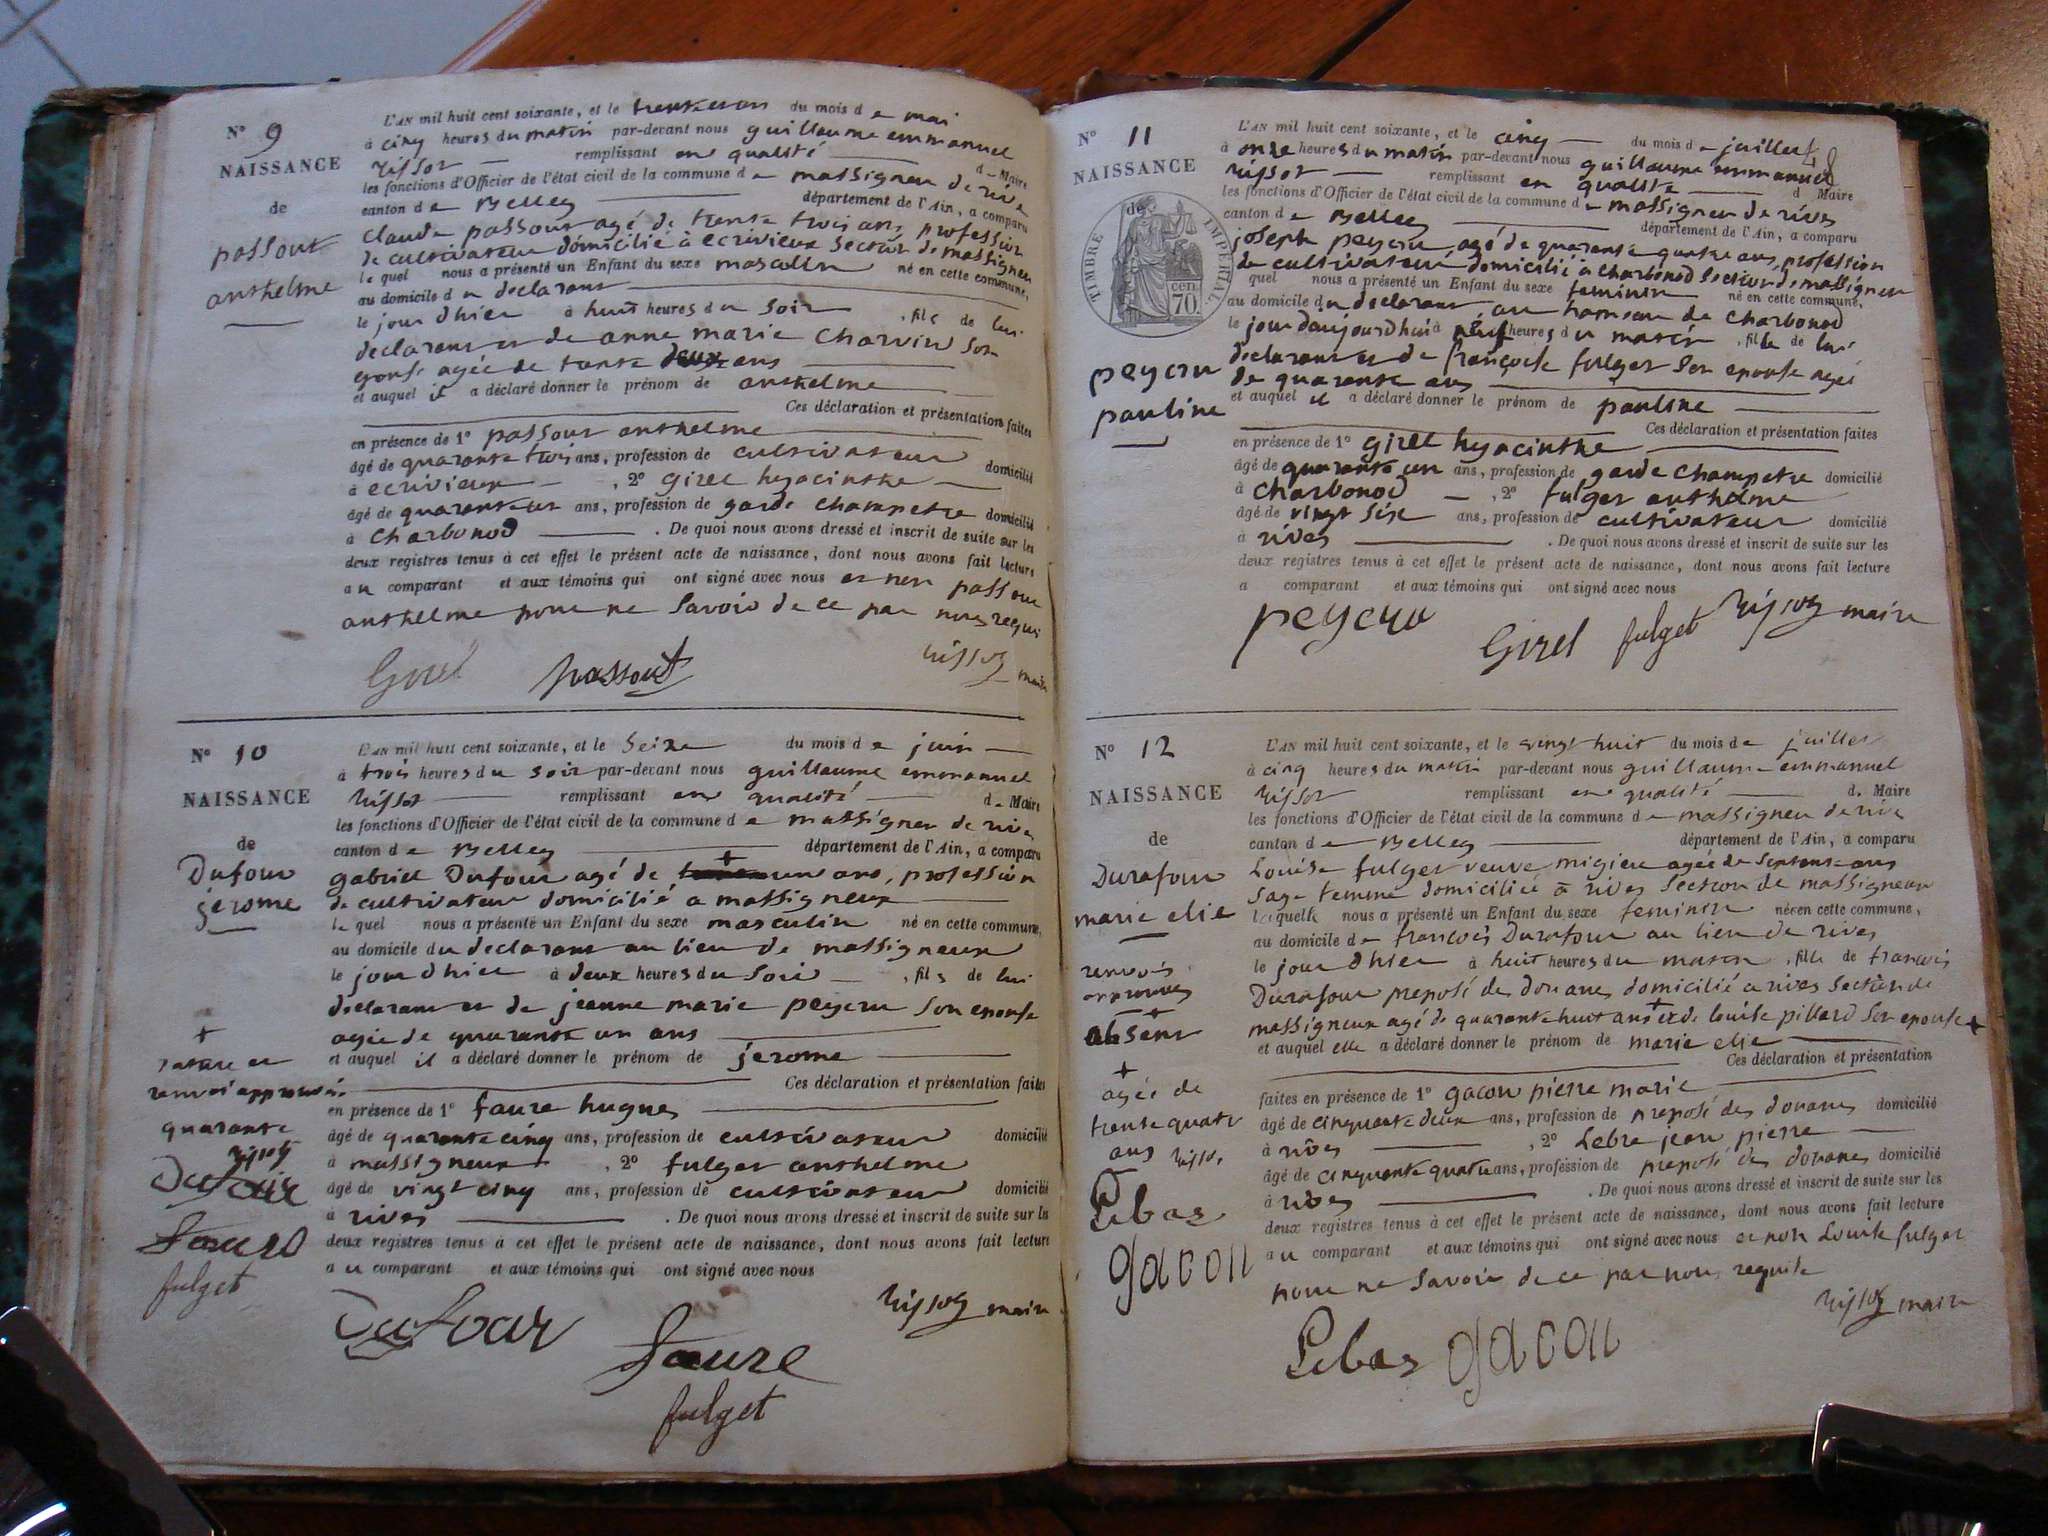 N° 9
NAISSANCE
de
passout
anthelme
L'AN mil huit cent soixante, et le trente un du mois de mai
à cinq heures du matin par-devant nous guillaume emmanuel
rissot remplissant en qualité de Maire
les fonctions d'Officier de l'état civil de la commune de massigneu de rive
canton de Belley département de l'Ain, a comparu
Claude passout agé de trente trois ans, profession
de cultivateur domicilié à ecrivieux section de massigneu
le quel nous a présenté un Enfant du sexe masculin né en cette commune,
au domicile du declarant
le jour dhier à huit heures du soir, fils de lui
declarant et de anne marie Charvin son
epouse agée de trente deux ans
et auquel il a déclaré donner le prénom de anthelme
Ces déclaration et présentation faites
en présence de 1° passout anthelme
âgé de quarante trois ans, profession de cultivateur domicilié
à ecrivieux, 2° Girel hyacinthe
âgé de quarante un ans, profession de garde champetre domicilié
à Charbonod. De quoi nous avons dressé et inscrit de suite sur les
deux registres tenus à cet effet le présent acte de naissance, dont nous avons fait lecture
au comparant et aux témoins qui ont signé avec nous et non passout
anthelme pour ne savoir de ce par nous requi
Girel passout rissot maire
N° 10
NAISSANCE
de
Dufour
jerome
L'AN mil huit cent soixante, et le seize du mois de juin
à trois heures du soir par-devant nous guillaume emmanuel
rissot remplissant en qualité de Maire
les fonctions d'Officier de l'état civil de la commune de massigneu de rive
canton de Belley département de l'Ain, a comparu
gabriel Dufour agé de + un ans, profession
de cultivateur domicilié a massigneux
le quel nous a présenté un Enfant du sexe masculin né en cette commune,
au domicile du declarant au lieu de massigneux
le jour dhier à deux heures du soir, fils de lui
declarant et de jeanne marie peyeru son epouse
agée de quarante un ans
et auquel il a déclaré donner le prénom de jerome
Ces déclaration et présentation faites
en présence de 1° faure hugues
âgé de quarante cinq ans, profession de cultivateur domicilié
à massigneux, 2° fulget anthelme
âgé de vingt cinq ans, profession de cultivateur domicilié
à rives. De quoi nous avons dressé et inscrit de suite sur les
deux registres tenus à cet effet le présent acte de naissance, dont nous avons fait lecture
au comparant et aux témoins qui ont signé avec nous
+
rature et
renvoi approuvés
quarante
rissot
Dufour
faure
fulget
Dufour rissot maire
faure
fulget
N° 11
NAISSANCE
de
TIMBRE IMPERIAL
70 cen.
peyeru
pauline
L'AN mil huit cent soixante, et le cinq du mois de juillet
à onze heures du matin par-devant nous guillaume emmanuel
rissot remplissant en qualité d Maire
les fonctions d'Officier de l'état civil de la commune de massigneu de rives
canton de Belley département de l'Ain, a comparu
joseph peyeru agé de quarante quatre ans, profession
de cultivateur domicilié à charbonod section de massigneu
quel nous a présenté un Enfant du sexe feminin né en cette commune,
au domicile du declarant au hameau de charbonod
le jour daujourdhui à neuf heures du matin, fille de lui
declarant et de françoise fulget son epouse agée
de quarante ans
et auquel il a déclaré donner le prénom de pauline
Ces déclaration et présentation faites
en présence de 1° girel hyacinthe
âgé de quarante un ans, profession de garde champetre domicilié
à Charbonod, 2° fulget anthelme
âgé de vingt six ans, profession de cultivateur domicilié
à rives. De quoi nous avons dressé et inscrit de suite sur les
deux registres tenus à cet effet le présent acte de naissance, dont nous avons fait lecture
a comparant et aux témoins qui ont signé avec nous
peyeru Girel fulget rissot maire
N° 12
NAISSANCE
de
Durafour
marie elie
L'AN mil huit cent soixante, et le vingt huit du mois de juillet
à cinq heures du matin par-devant nous guillaume emmanuel
rissot remplissant en qualité d. Maire
les fonctions d'Officier de l'état civil de la commune de massigneu de rive
canton de Belley département de l'Ain, a comparu
Louise fulget veuve migieu agée de septente ans
sage femme domiciliée à rives section de massigneux
laquelle nous a présenté un Enfant du sexe feminin né en cette commune,
au domicile de françois Durafour au lieu de rives
le jour dhier à huit heures du matin, fille de francois
Durafour preposé des douanes domicilié a rives section de
massigneux agé de quarante huit ans + et de louise pillard son epouse +
et auquel elle a déclaré donner le prénom de marie elie
Ces déclaration et présentation
faites en présence de 1° gacon pierre marie
âgé de cinquante deux ans, profession de preposé des douanes domicilié
à rives, 2° Lebre jean pierre
âgé de cinquante quatre ans, profession de preposé des douanes domicilié
à rives. De quoi nous avons dressé et inscrit de suite sur les
deux registres tenus à cet effet le présent acte de naissance, dont nous avons fait lecture
au comparant et aux témoins qui ont signé avec nous et non Louise fulget
pour ne savoir de ce par nous requise
renvois
approuvés
+
absent
+
agée de
trente quatre
ans rissot
gacon
rissot maire
gacon